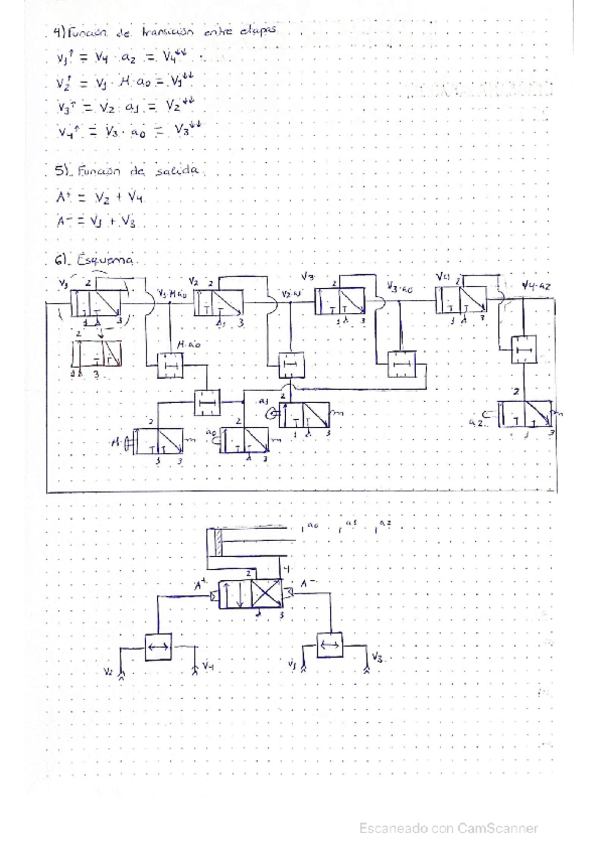 4) Función de transición entre etapas
V1↑ = V4 · a2 = V4↓↓
V2↑ = V1 · M · a0 = V1↓↓
V3↑ = V2 · a1 = V2↓↓
V4↑ = V3 · a0 = V3↓↓
5). Función de salida
A+ = V2 + V4
A- = V1 + V3
6). Esquema
V1 2 V1·M·a0 V2 2 V2·a1 V3 2 V3·a0 V4 2 V4·a2
1 3 1 3 1 3 1 3
2
1 3
M·a0
a1 2
1 3
M 2 a0 2 a2 2
1 3 1 3 1 3
a0 a1 a2
A+ 2 4 A-
1 3
V2 V4 V1 V3
Escaneado con CamScanner